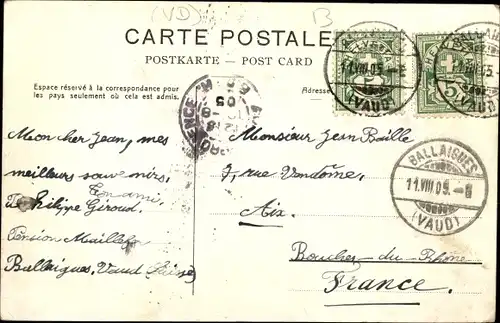 (VD)
B
CARTE POSTALE
POSTKARTE — POST CARD
Espace réservé à la correspondance pour
les pays seulement où cela est admis.
Adresse
5
5
11.VIII.05.
(VAUD)
(VAUD)
PROVENCE
05
BALLAIGUES
11.VIII 05.–8
(VAUD)
Mon cher Jean, mes
meilleurs souvenirs.
Ton ami,
Philippe Giroud.
Pension Maillefer
Ballaigues, Vaud (Suisse)
Monsieur Jean Baille
7, rue Vendôme,
Aix.
Bouches-du-Rhône
France.